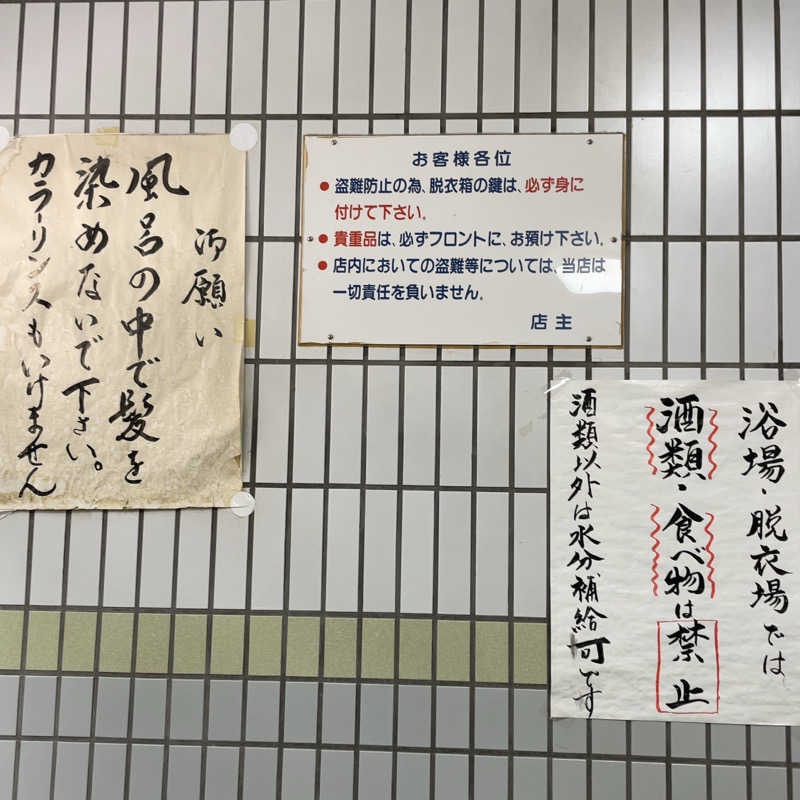 御願い
風呂の中で髪を
染めないで下さい。
カラーリンスもいけません
お客様各位
● 盗難防止の為、脱衣箱の鍵は、必ず身に
付けて下さい。
● 貴重品は、必ずフロントに、お預け下さい。
● 店内においての盗難等については、当店は
一切責任を負いません。
店主
浴場・脱衣場では
酒類・食べ物は禁止
酒類以外は水分補給可です